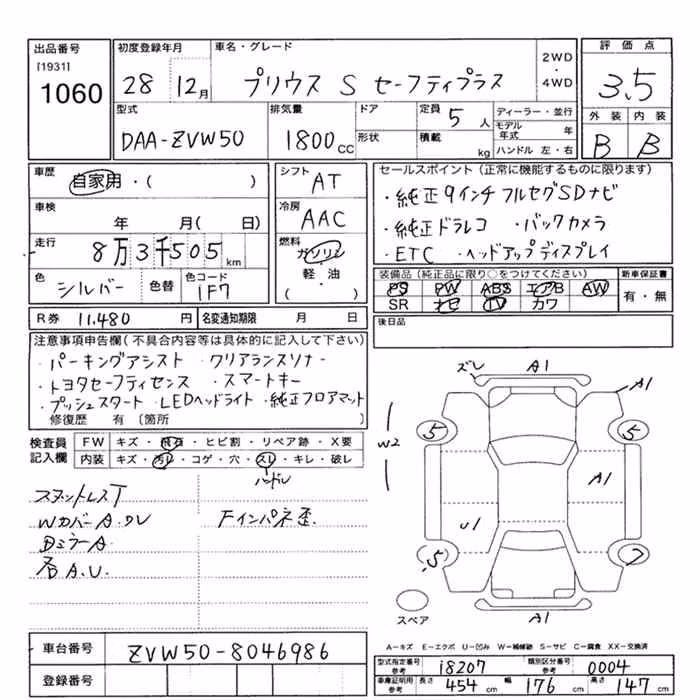 出品番号 初度登録年月 車名・グレード 評価点
[1931] 1060 28 12月 プリウス S セーフティプラス 2WD・4WD 3.5
型式 排気量 ドア 定員 5人 ディーラー・並行 外装 内装
DAA-ZVW50 1800cc 形状 積載 kg モデル年式 年 B B
ハンドル 左・右
車歴 自家用・( ) シフト AT セールスポイント(正常に機能するものに限ります)
・純正9インチフルセグSDナビ
車検 年 月( 日) 冷房 AAC ・純正ドラレコ ・バックカメラ
走行 8万3千505km 燃料 ガソリン ・ETC ・ヘッドアップディスプレイ
軽・油
( )
色 シルバー 色替 色コード 1F7 装備品(純正品に限り○をつけてください) 新車保証書
PS PW ABS エアB AW 有・無
SR ナビ TV カワ
R券 11,480円 名変通知期限 月 日 後日品
注意事項申告欄(不具合内容等は具体的に記入して下さい)
・パーキングアシスト ・クリアランスソナー
・トヨタセーフティセンス ・スマートキー
・プッシュスタート ・LEDヘッドライト ・純正フロアマット
修復歴 有 [箇所 ]
検査員記入欄 FW キズ・飛石・ヒビ割・リペア跡・X要
内装 キズ・汚レ・コゲ・穴・スレ・キレ・破レ
ハンドル
WカバーA
Fインパネ歪
DミラーA.
A.U.
ズレ A1
A1
5 5
W2
A1
U1
5 7
スペア A1
A-キズ E-エクボ U-凹み W-補修跡 S-サビ C-腐食 XX-交換済
車台番号 ZVW50-8046986
登録番号
型式指定番号 参考 18207 類別区分番号 参考 0004
車庫証明用 参考 長さ 454cm 幅 176cm 高さ 147cm